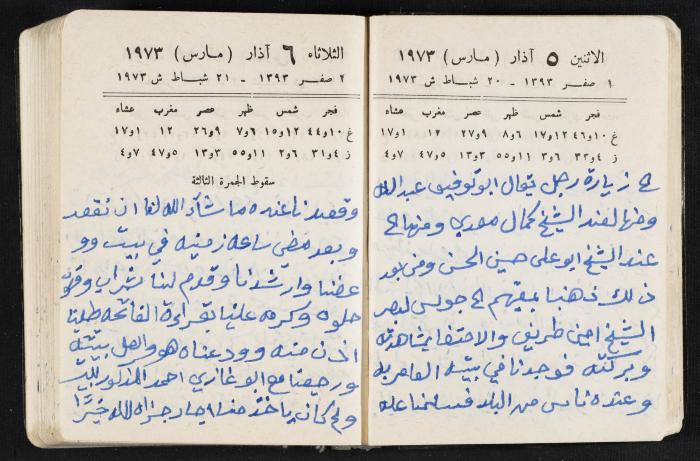 الاثنين ٥ آذار (مارس) ١٩٧٣
١ صفر ١٣٩٣ - ٢٠ شباط ش ١٩٧٣
فجر شمس ظهر عصر مغرب عشاء
غ ١٠و٤٦ ١٢و١٧ ٦و٨ ٩و٢٧ ١٢ ١و١٧
ز ٤و٣٣ ٦و٣ ١١و٥٥ ٣و١٣ ٥و٤٧ ٧و٤
زيارة رجل يقال ابو توفيق عبد الله
ومنها لعند الشيخ كمال معدي ومنها الى
عند الشيخ ابو علي حسين الحسن ومن بعد
ذلك ذهبنا بمعيتهم الى جولس لنبصر
الشيخ امين طريف والاحتفا بمشاهدته
وبركته فوجدنا في بيته العامر به
وعنده ناس من البلد فسلمنا عليه
الثلاثاء ٦ آذار (مارس) ١٩٧٣
٢ صفر ١٣٩٣ - ٢١ شباط ش ١٩٧٣
فجر شمس ظهر عصر مغرب عشاء
غ ١٠و٤٤ ١٢و١٥ ٦و٧ ٩و٢٦ ١٢ ١و١٧
ز ٤و٣١ ٦و٢ ١١و٥٥ ٣و١٣ ٥و٤٧ ٧و٤
سقوط الجمرة الثالثة
وقعدنا عنده ما شاء الله لنا ان نقعد
وبعد مضي ساعه زمنيه في بيت وو
عضنا وارشدنا وقدم لنا شراب وقهوة
حلوه وكرمه علينا بقراءة الفاتحه طلبنا
الاذن منه وودعناه هو واهل بيته
ورجعنا مع ابو غازي احمد المذكور للبيت
ولم كان ياخذ منا ايجار جزاه الله خيرًا